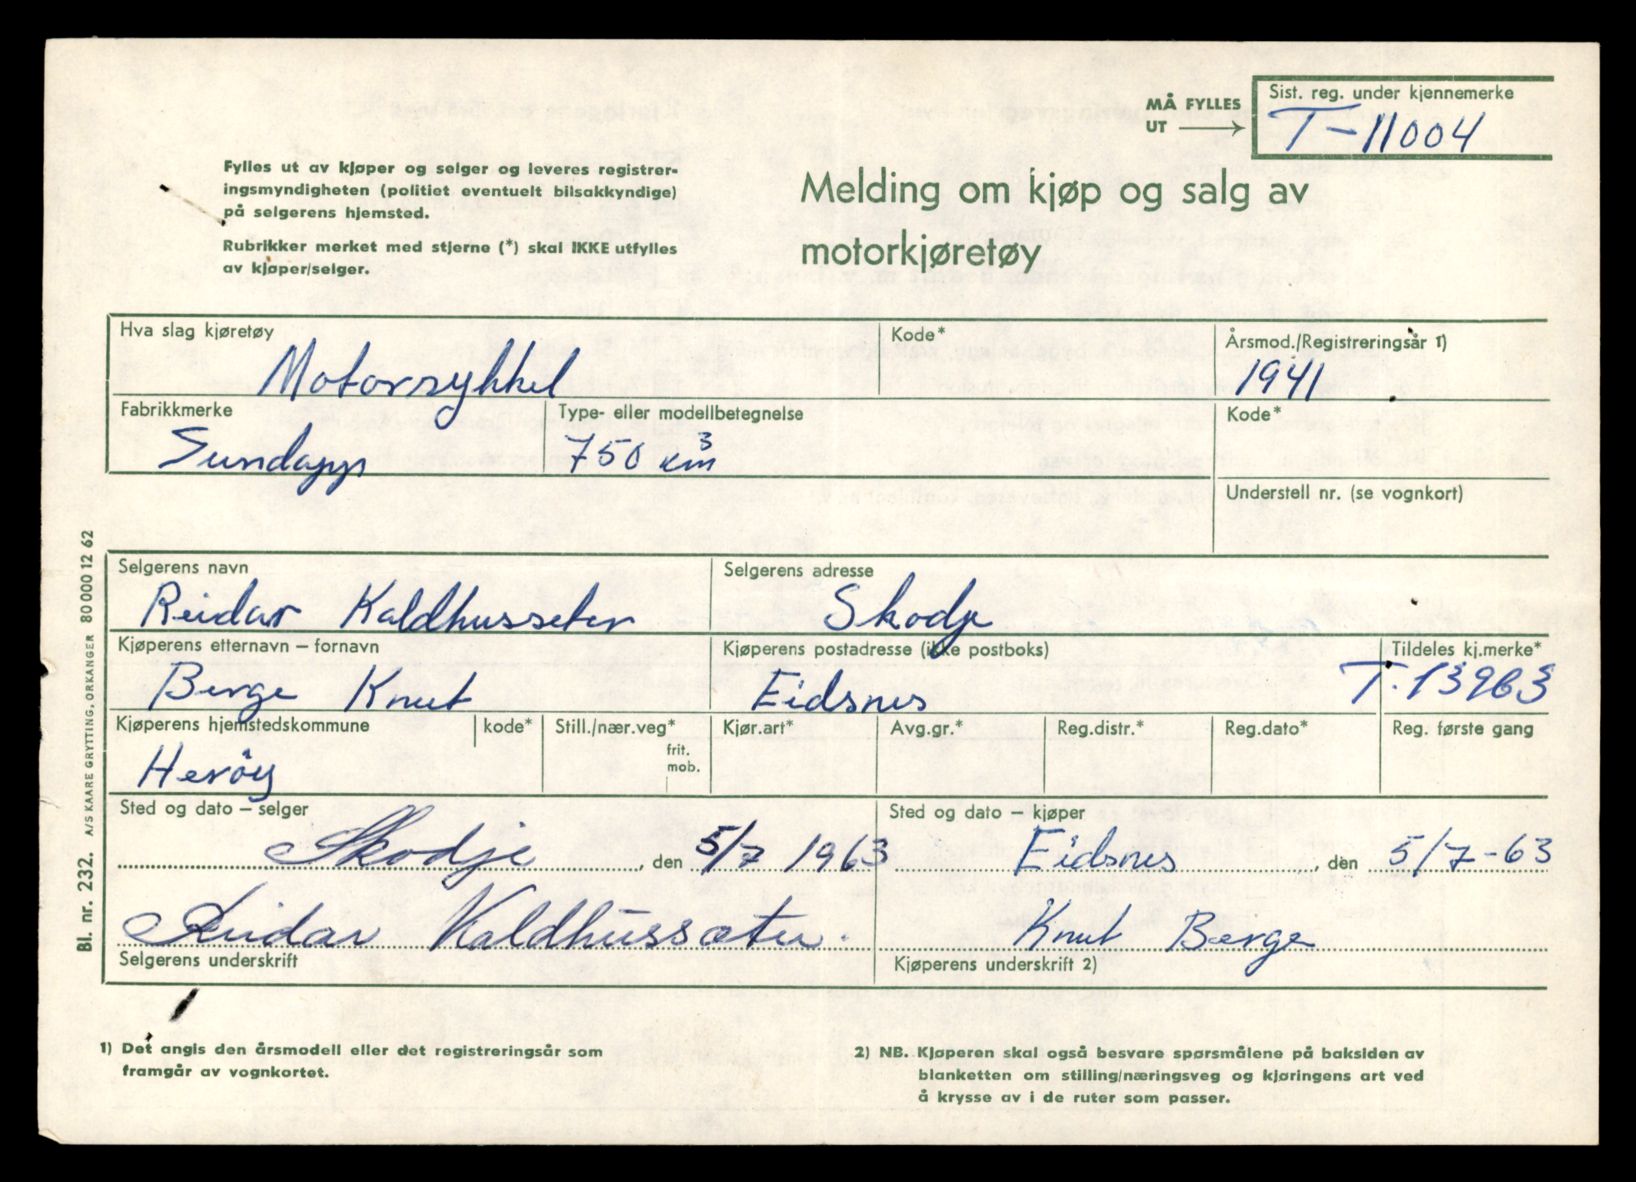 MÅ FYLLES UT
Sist. reg. under kjennemerke
T-11004
Fylles ut av kjøper og selger og leveres registrer-
ingsmyndigheten (politiet eventuelt bilsakkyndige)
på selgerens hjemsted.
Rubrikker merket med stjerne (*) skal IKKE utfylles
av kjøper/selger.
Melding om kjøp og salg av
motorkjøretøy
Hva slag kjøretøy
Motorsykkel
Kode*
Årsmod./Registreringsår 1)
1941
Fabrikkmerke
Sundapp
Type- eller modellbetegnelse
750 cm3
Kode*
Understell nr. (se vognkort)
Selgerens navn
Reidar Kaldhusseter
Selgerens adresse
Skodje
Kjøperens etternavn – fornavn
Berge Knut
Kjøperens postadresse (ikke postboks)
Eidsnes
Tildeles kj.merke*
T-13963
Kjøperens hjemstedskommune
Heröy
kode*
Still./nær.veg*
frit.
mob.
Kjør.art*
Avg.gr.*
Reg.distr.*
Reg.dato*
Reg. første gang
Sted og dato – selger
Skodje, den 5/7 1963
Sted og dato – kjøper
Eidsnes, den 5/7-63
Reidar Kaldhussæter.
Selgerens underskrift
Knut Berge
Kjøperens underskrift 2)
1) Det angis den årsmodell eller det registreringsår som
framgår av vognkortet.
2) NB. Kjøperen skal også besvare spørsmålene på baksiden av
blanketten om stilling/næringsveg og kjøringens art ved
å krysse av i de ruter som passer.
Bl. nr. 232. A/S KAARE GRYTTING, ORKANGER 80000 12 62